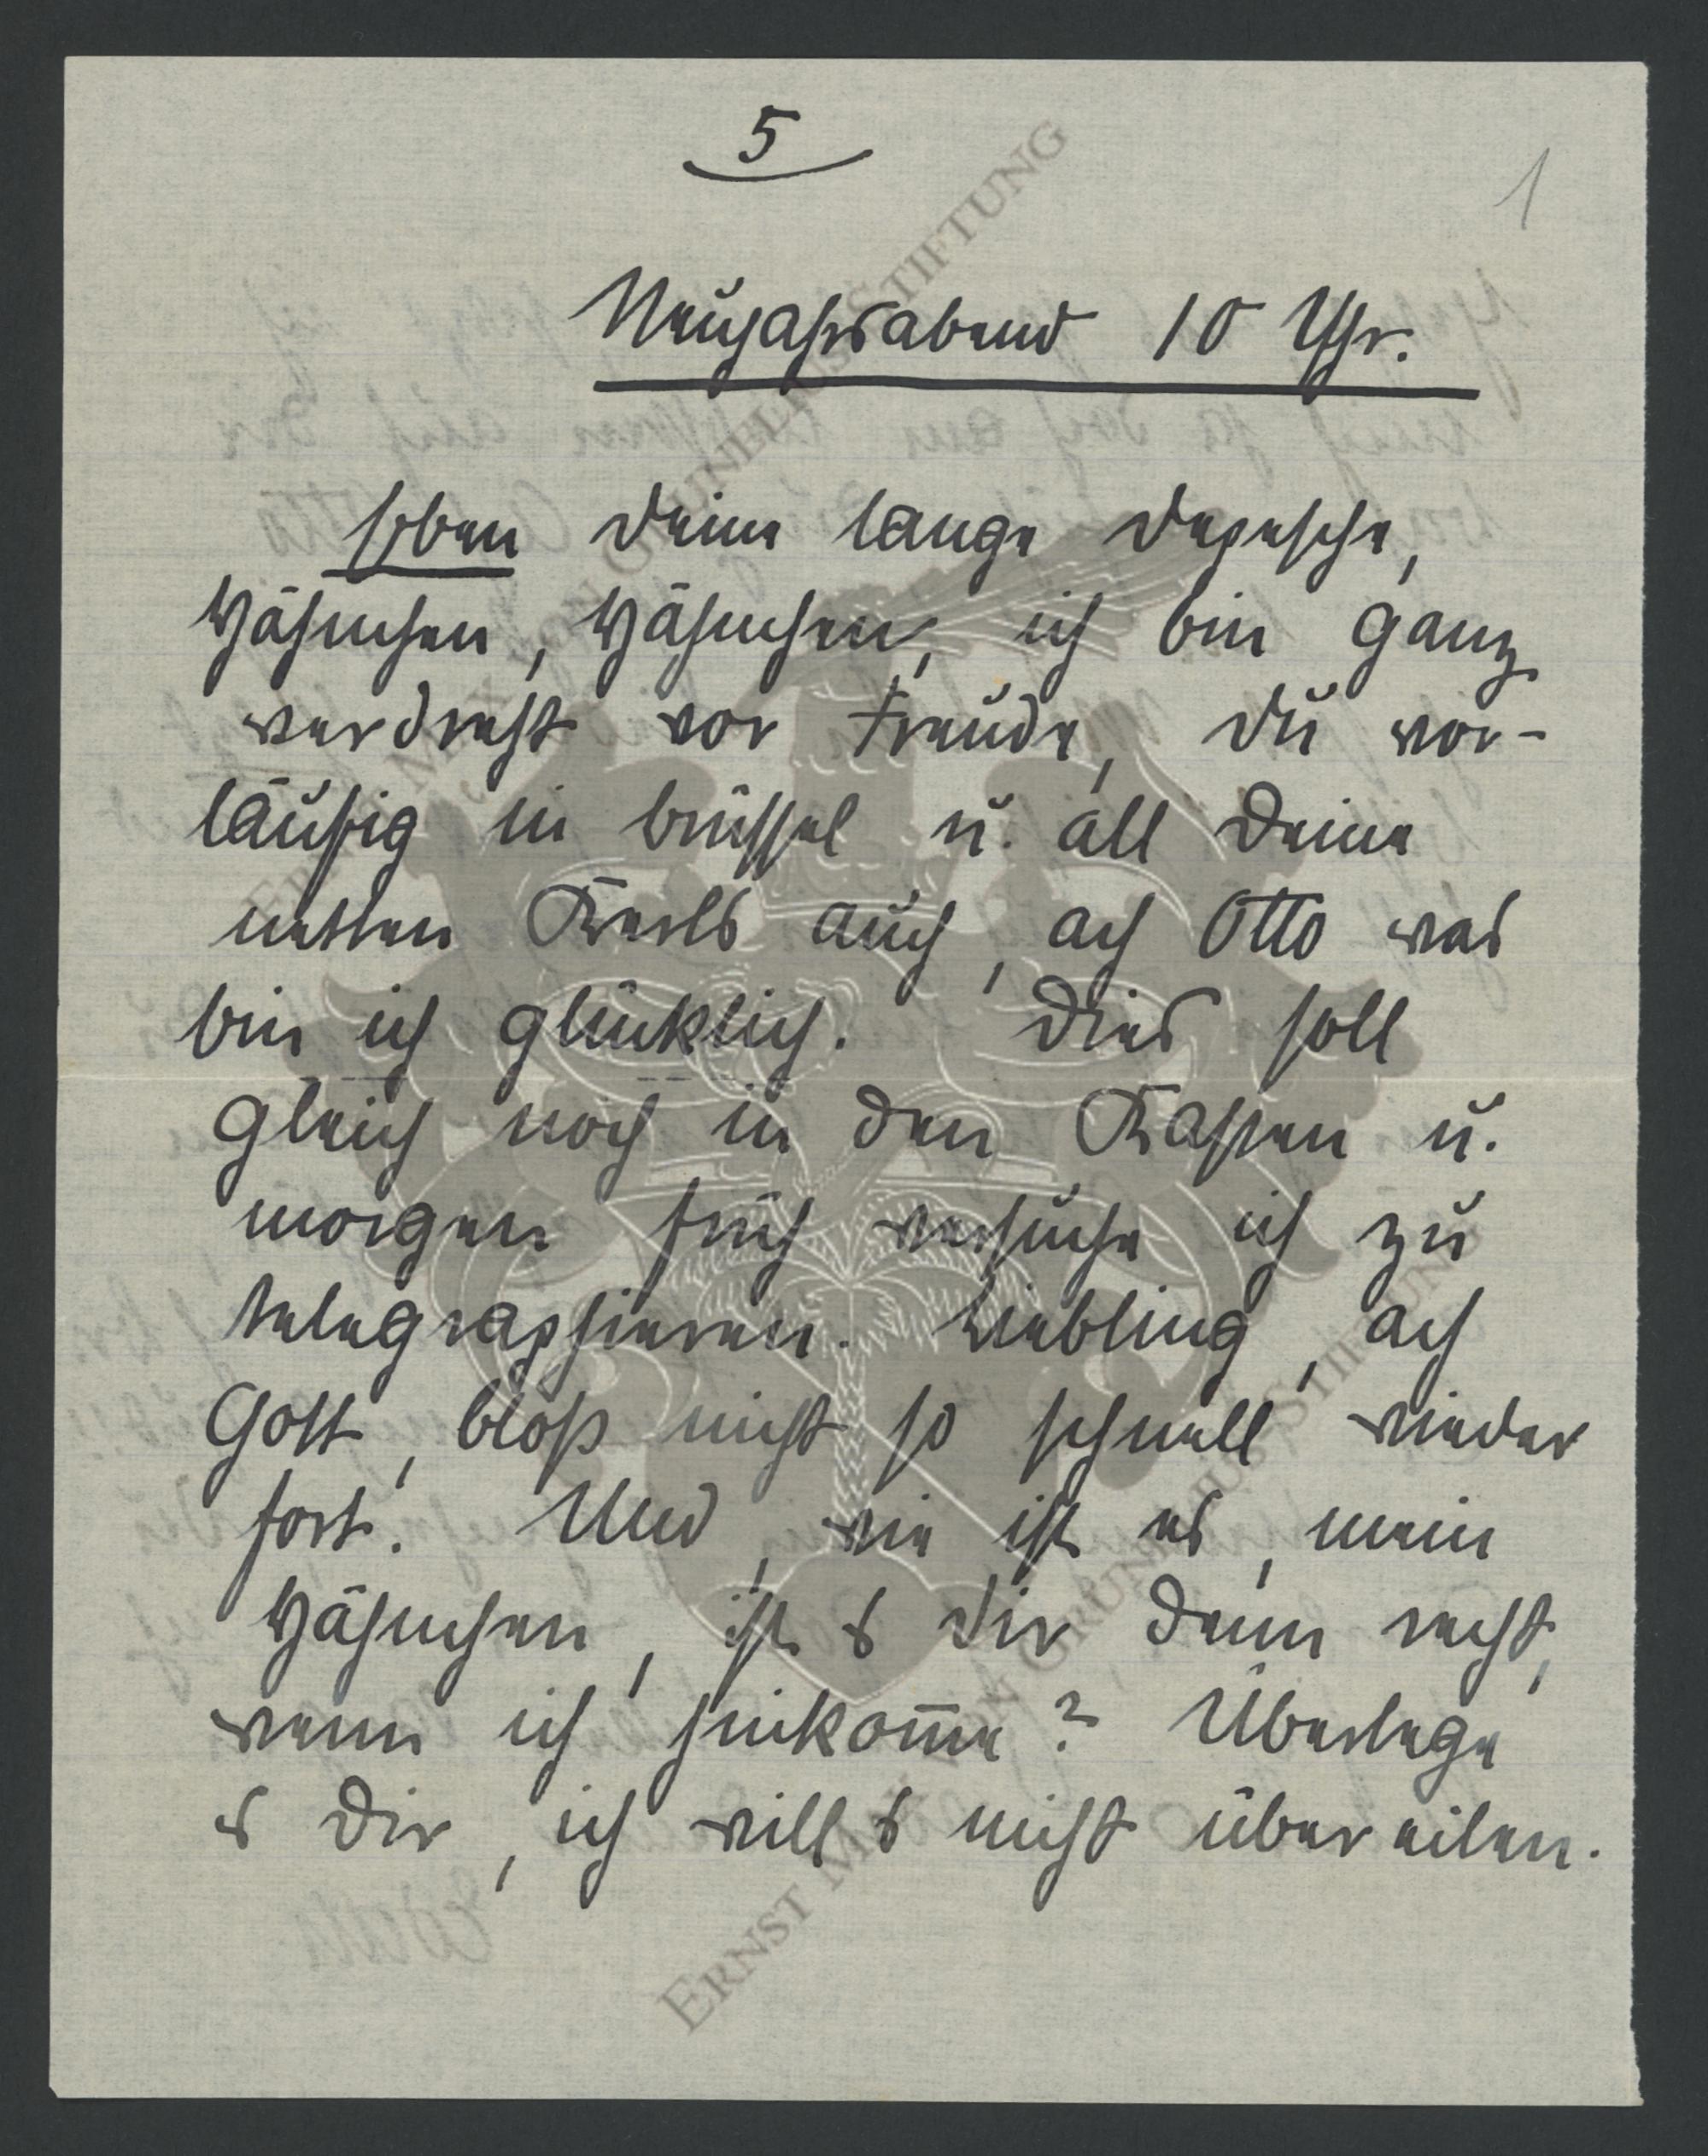 5
1
Neujahrsabend 10 Uhr.
Eben Deine lange Depesche,
Hähnchen, Hähnchen, ich bin ganz
verdreht vor Freude, Du vor-
läufig in Brüssel u. all Deine
netten Kerls auch, ach Otto was
bin ich glücklich. Dies soll
gleich noch in den Kasten u.
morgen früh versuche ich zu
telegraphieren. Liebling, ach
Gott, bloß nicht so schnell wieder
fort. Und, wie ist es, mein
Hähnchen, ist s Dir denn recht,
wenn ich hinkom̅e? Überlege
s Dir, ich will s nicht übereilen.
ERNST MAX VON GRUNELIUS STIFTUNG
ERNST MAX VON GRUNELIUS STIFTUNG